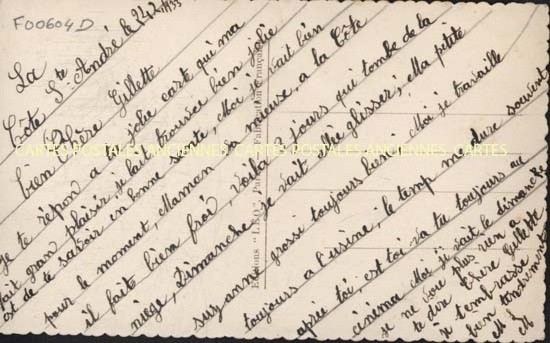 F00604D
La Côte St André le 24.2.1955
bien Chère Gillette
je te répon a ta jolie carte qui ma
fait gran plaisir, je lait trouvée bien jolie
et de te savoir en bonne santé, Moi je vait bien
pour le moment, Maman de ma voineuse, a la Côte
il faite bien froi, voila 2 jours qui tombe de la
nège, Dimanche je vait allé glisser, Ma petite
suzanne grosse toujours bien. Moi je travaille
toujours a l'usine, le temp me dure souvent
aprée toi, est toi va tu toujours au
cinéma Moi je vait le dimanche
je ne voie plus rien a
te dire Chère Gillette
je tembrasse
bien tendrement
Editions "L.E.O."
CARTES POSTALES ANCIENNES CARTES POSTALES ANCIENNES CARTES